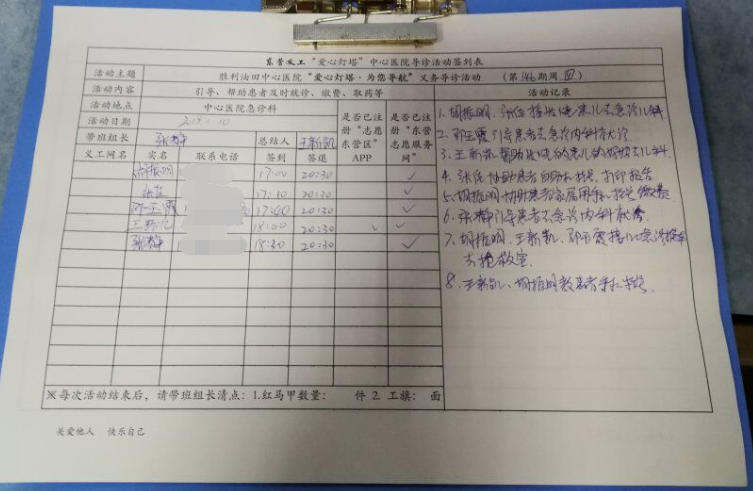 东营义工“爱心灯塔”中心医院导诊活动签到表
活动主题 胜利油田中心医院“爱心灯塔·为您导航”义务导诊活动 (第 期周四)
活动内容 引导、帮助患者及时就诊、缴费、取药等 活动记录
活动地点 中心医院急诊科
活动日期
是否已注册“志愿东营区”APP
是否已注册“东营志愿服务网”
带班组长 张静 总结人 王新凯
义工网名 实名 联系电话 签到 签退
胡振明 17:00 20:30 ✓
张 17:30 20:30 ✓
邓玉霞 17:40 20:30 ✓
王新凯 18:00 20:30 ✓ ✓
张静 18:30 20:30 ✓
1. 胡振明、张 患儿去急诊儿科
2. 邓玉霞引导患者去急诊内科就诊
3. 王新凯帮助 的患儿 儿科
4. 张 协助患者自助机挂号,打印报告
5. 胡振明协助患者家属用手机挂号缴费
6. 张静引导患者去急诊内科就诊
7. 胡振明、王新凯、邓玉霞接 急救车
去抢救室
8. 王新凯、胡振明教患者手机挂号
※每次活动结束后,请带班组长清点:1.红马甲数量: 件 2.工旗: 面
关爱他人 快乐自己